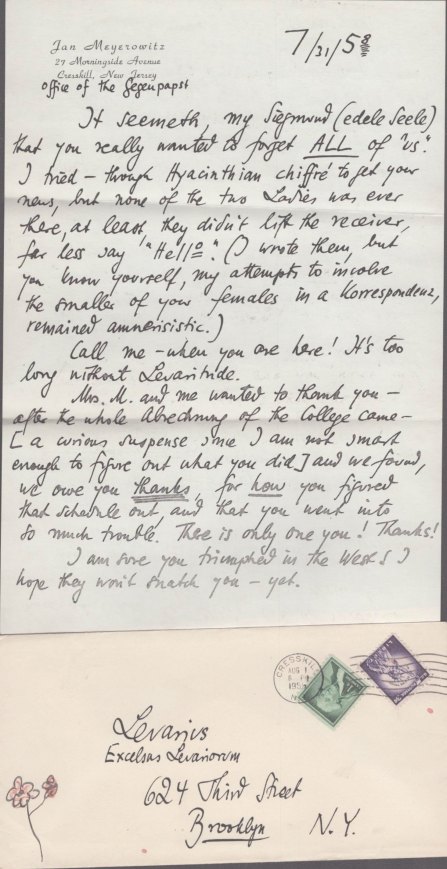 Jan Meyerowitz
27 Morningside Avenue
Cresskill, New Jersey
Office of the Gegenpapst
7/31/58
It seemeth, my Siegmund (edele Seele)
that you really wanted to forget ALL of "us".
I tried – through Hyacinthian chiffre to get your
news, but none of the two Ladies was ever
there, at least, they didn't lift the receiver,
far less say "Hello". (I wrote them, but
you know yourself, my attempts to involve
the smaller of your females in a Korrespondenz,
remained
Call me – when you are here! It's too
long without
Mrs. M. and me wanted to thank you –
after the whole Abrechnung of the College came –
[a curious suspense since I am not smart
enough to figure out what you did] and we found,
we owe you thanks, for how you figured
that schedule out, and that you went into
so much trouble. There is only one you! Thanks!
I am sure you triumphed in the West! I
hope they won't snatch you – yet.
CRESSKILL
AUG 1
195
N.J.
Levarius
Excelsus Levariorum
624 Third Street
Brooklyn N.Y.